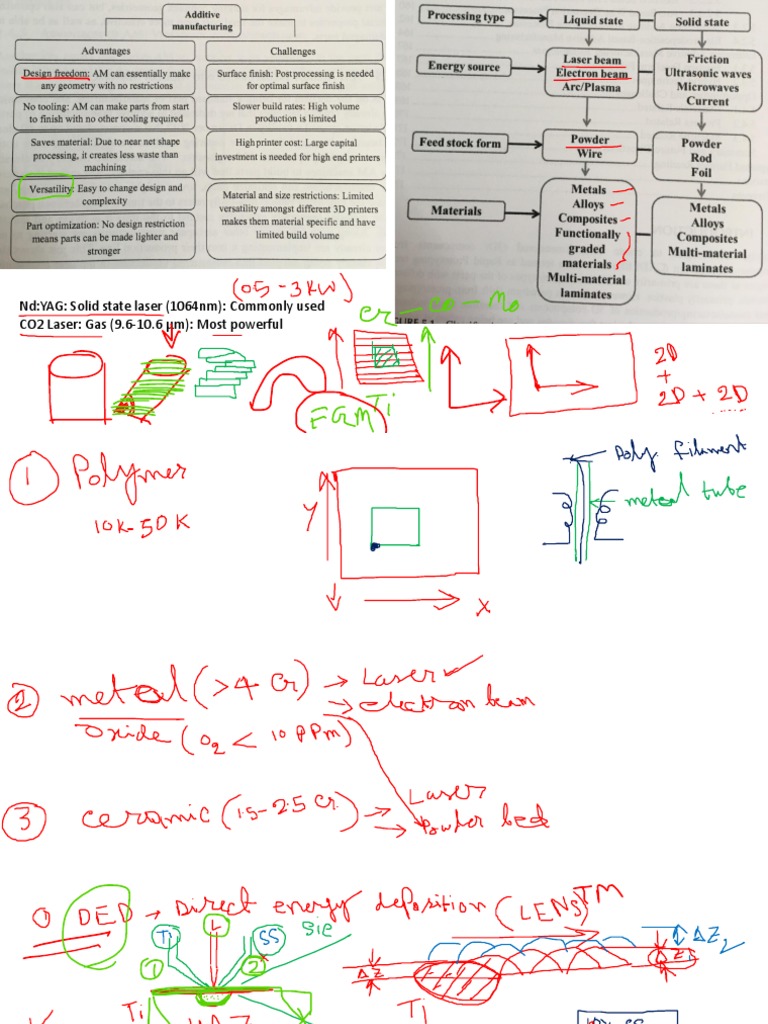 Additive
manufacturing
Advantages
Challenges
Design freedom: AM can essentially make
any geometry with no restrictions
Surface finish: Post processing is needed
for optimal surface finish
No tooling: AM can make parts from start
to finish with no other tooling required
Slower build rates: High volume
production is limited
Saves material: Due to near net shape
processing, it creates less waste than
machining
High printer cost: Large capital
investment is needed for high end printers
Versatility: Easy to change design and
complexity
Material and size restrictions: Limited
versatility amongst different 3D printers
makes them material specific and have
limited build volume
Part optimization: No design restriction
means parts can be made lighter and
stronger
Processing type
Liquid state
Solid state
Energy source
Laser beam
Electron beam
Arc/Plasma
Friction
Ultrasonic waves
Microwaves
Current
Feed stock form
Powder
Wire
Powder
Rod
Foil
Materials
Metals
Alloys
Composites
Functionally
graded
materials
Multi-material
laminates
Metals
Alloys
Composites
Multi-material
laminates
(05-3KW)
Nd:YAG: Solid state laser (1064nm): Commonly used
CO2 Laser: Gas (9.6-10.6 μm): Most powerful
Cr-Co-Mo
FGM
Ti
2D
+
2D + 2D
1 Polymer
10K-50K
y
x
Poly filament
metal tube
2 metal (>4 Cr) → Laser
→ electron beam
Oxide (O2 < 10 PPm)
3 ceramic (1.5-2.5 Cr) → Laser
→ Powder bed
DED → Direct energy deposition (LENS)TM
Ti
L
SS
1
2
Ti
ΔZ
ΔZ2
Ti